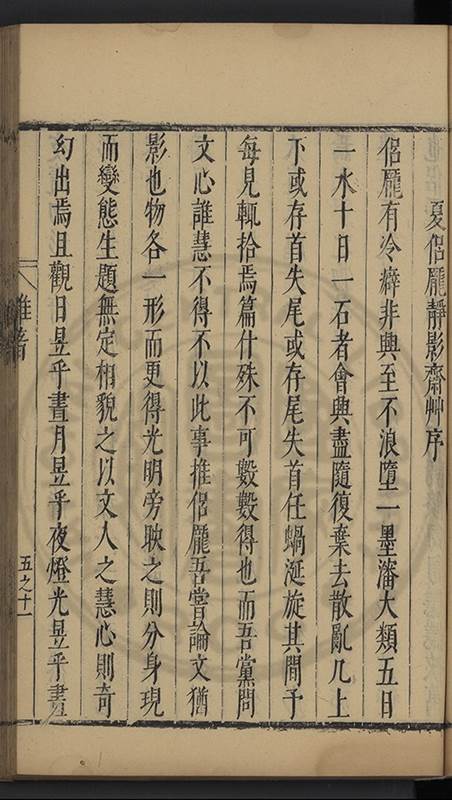 夏侶龐靜影齋艸序
侶龐有冷癖非興至不浪墮一墨瀋大類五日
一水十日一石者會興盡隨復棄去散亂几上
下或存首失尾或存尾失首任蝸涎旋其間予
每見輒拾焉篇什殊不可數數得也而吾黨問
文心誰慧不得不以此事推侶龐吾嘗論文猶
影也物各一形而更得光明旁映之則分身現
而變態生題無定相貌之以文人之慧心則奇
幻出焉且觀日昱乎晝月昱乎夜燈光昱乎晝
雜著
五之十一